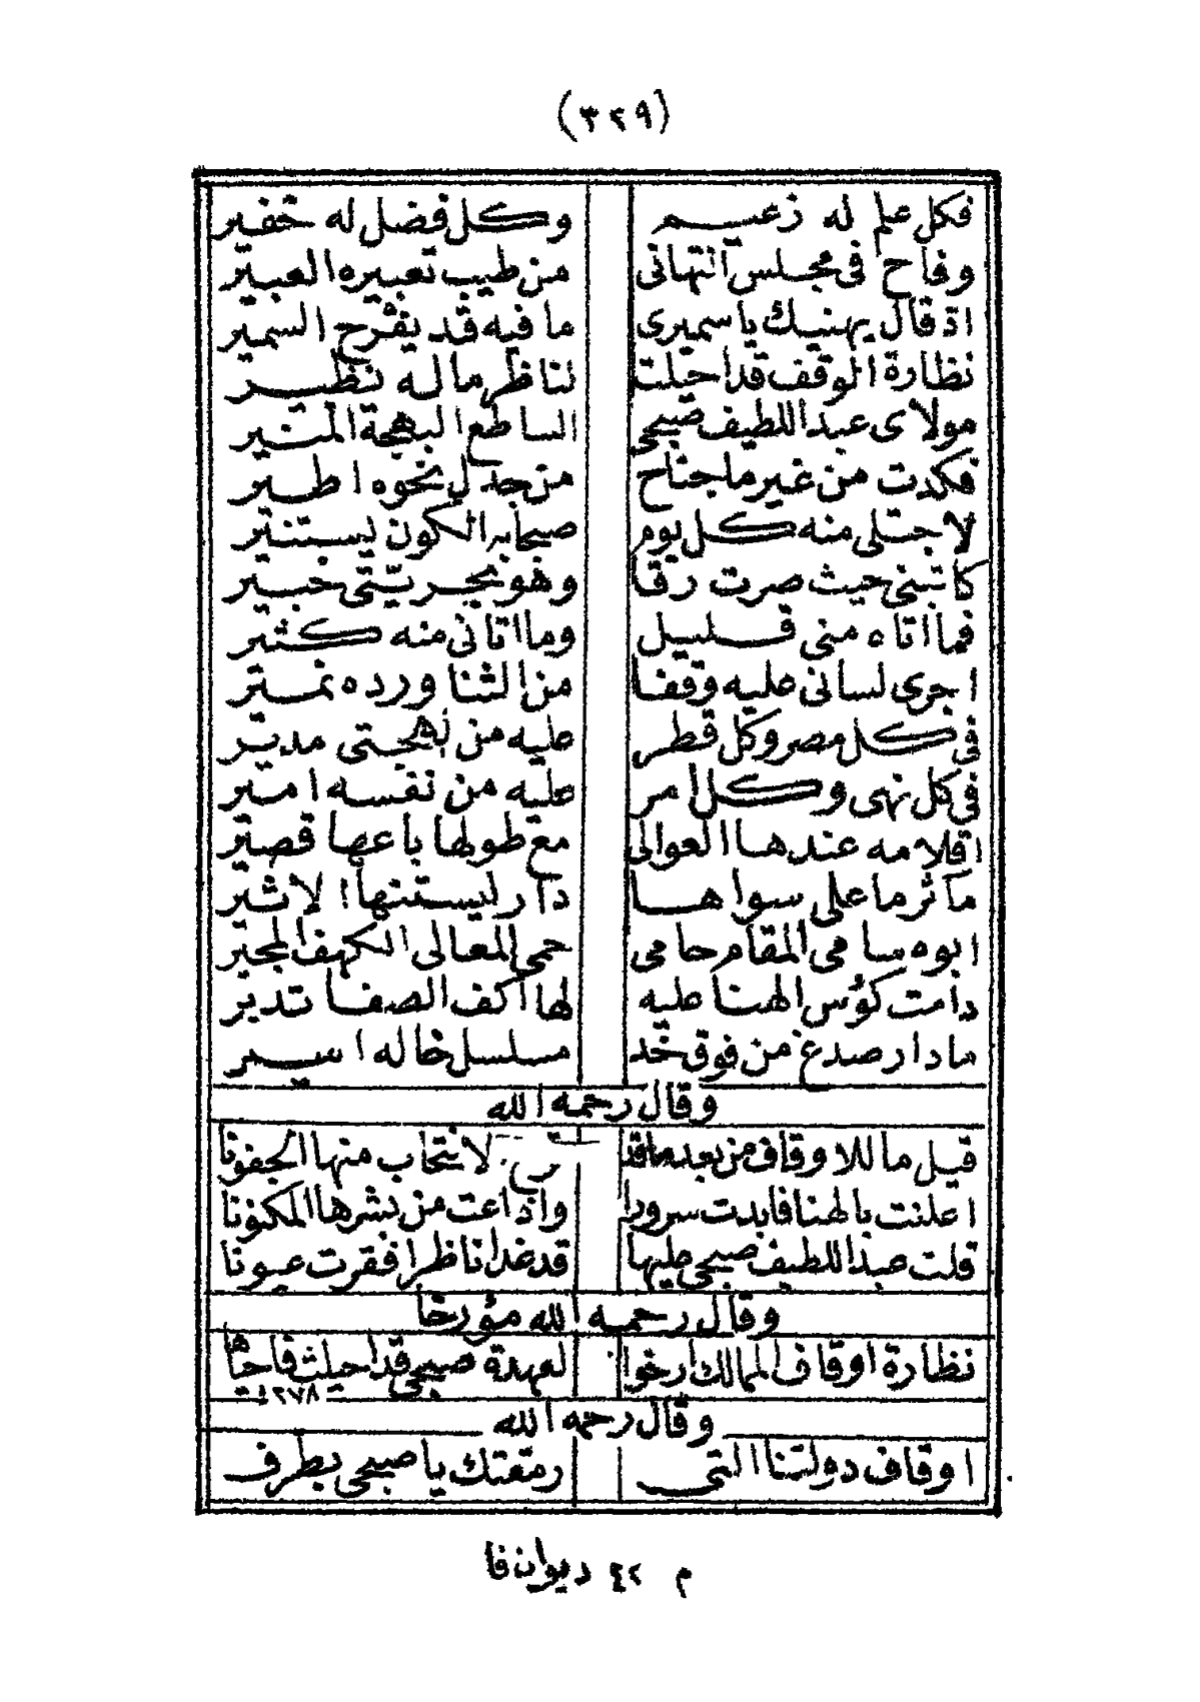 (٣٢٩)
فكل علم له زعيم وكل فضل له خفير
وفاح فى مجلس التهانى من طيب تعبيره العبير
اذ قال يهنيك ياسميرى ما فيه قد يفرح السمير
نظارة الوقف قد احيلت لناظر ماله نظير
مولاى عبد اللطيف صبحى الساطع البهجة المنير
فكدت من غير ما جناح من جذل نحوه اطير
لاجتلى منه كل يوم صبحا به الكون يستنير
كاتبنى حيث صرت رقا وهو بحريتى خبير
فما اتاه منى قليل وما اتانى منه كثير
اجرى لسانى عليه وقفا من الثنا ورده نمير
فى كل مصر وكل قطر عليه من لهجتى مدير
فى كل نهى وكل امر عليه من نفسه امير
اقلامه عندها العوالى مع طولها باعها قصير
مآثر ما على سواها دار ليستنتها الاثير
ابوه سامى المقام حامى حمى المعالى الكهف المجير
دامت كؤس الهنا عليه لها اكف الصفا تدير
ما دار صدغ من فوق خد مسلسل خاله اسير
وقال رحمه الله
قيل ما للاوقاف من بعد ما قد لانتحاب منها الجفونا
اعلنت بالهنا فابدت سرورا واذاعت من بشرها المكنونا
قلت عبد اللطيف صبحى عليها قد غدا ناظرا فقرت عيونا
وقال رحمه الله مؤرخا
نظارة اوقاف الممالك ارخوا لعهدة صبحى قد احيلت فاحياها
١٢٧٨
وقال رحمه الله
اوقاف دولتنا التى رمقتك يا صبحى بطرف
م ٤٢ ديوان فا